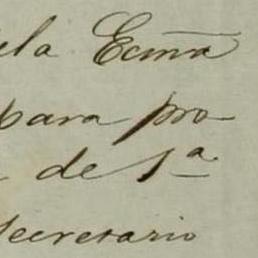 ela Ecma
para pro-
de 1ª
Secretario